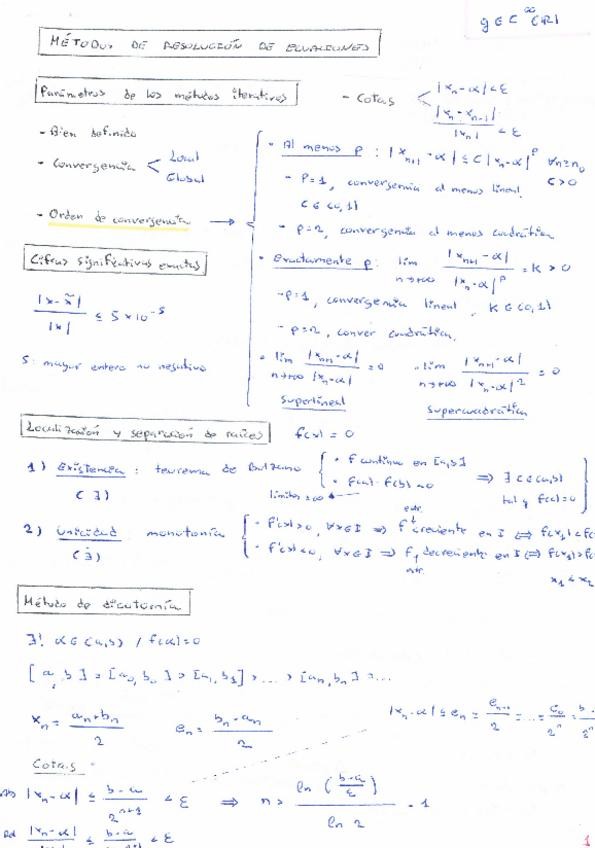 g ∈ C^∞(ℝ)
MÉTODOS DE RESOLUCIÓN DE ECUACIONES
Parámetros de los métodos iterativos
- Cotas
|x_n - α| < ε
|x_n - x_{n-1}| / |x_n| < ε
- Bien definido
- Convergencia
Local
Global
- Orden de convergencia →
• Al menos p : |x_{n+1} - α| ≤ C |x_n - α|^p ∀n ≥ n_0
C > 0
- p=1, convergencia al menos lineal.
C ∈ (0,1)
- p=2, convergencia al menos cuadrática
• Exactamente p: lim_{n→+∞} |x_{n+1} - α| / |x_n - α|^p = K > 0
- p=1, convergencia lineal, K ∈ (0,1)
- p=2, conver cuadrática.
• lim_{n→+∞} |x_{n+1} - α| / |x_n - α| = 0
Superlineal
• lim_{n→+∞} |x_{n+1} - α| / |x_n - α|^2 = 0
Supercuadrática
Cifras significativas exactas
|x - x̃| / |x| ≤ 5 × 10^{-s}
s: mayor entero no negativo
Localización y separación de raíces
f(x) = 0
1) Existencia: teorema de Bolzano
(∃)
• f continua en [a,b]
• f(a) · f(b) < 0
límites ±∞
⇒ ∃ c ∈ (a,b)
tal q f(c)=0
2) Unicidad: monotonía
• f'(x) > 0, ∀x ∈ I ⇒ f creciente en I ⇔ f(x_1) < f(
estr.
• f'(x) < 0, ∀x ∈ I ⇒ f decreciente en I ⇔ f(x_1) > f(
estr.
x_1 < x_2
Método de dicotomía
∃! α ∈ (a,b) / f(α) = 0
[a,b] = [a_0,b_0] ⊃ [a_1,b_1] ⊃ ... ⊃ [a_n,b_n] ⊃ ...
x_n = (a_n + b_n) / 2
e_n = (b_n - a_n) / 2
|x_n - α| ≤ e_n = e_{n-1} / 2 = ... = e_0 / 2^n = b - / 2^n
Cotas
|x_n - α| ≤ (b - a) / 2^{n+1} < ε ⇒ n > ln((b-a)/ε) / ln 2 - 1
|x_n - α|
≤ b - a < ε
1